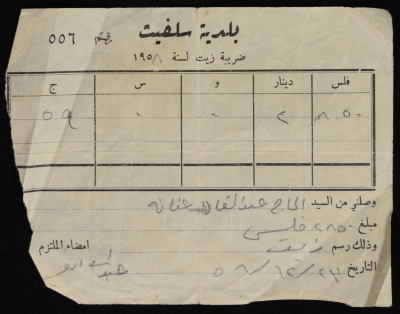 بلدية سلفيت رقم ٥٥٦
ضريبة زيت لسنة ١٩٥٨
فلس دينار و س ج
٨٥٠ ٢ ٠ ٠ ٥٩
وصلني من السيد الحاج عبد القادر عنانه
مبلغ ٢٨٥٠ فلس
وذلك رسم زيت امضاء الملتزم
التاريخ ٥٨/١٢/٢٧